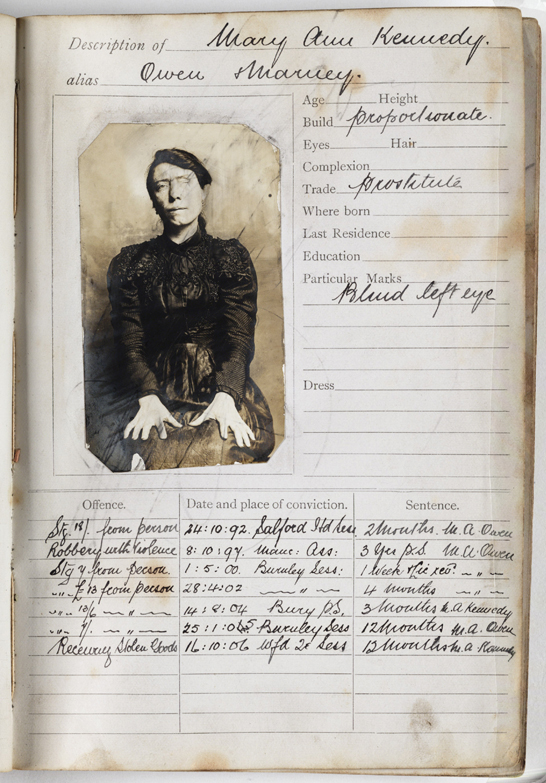 Description of Mary Ann Kennedy.
alias Owen & Marney.
Age Height
Build proportionate.
Eyes Hair
Complexion
Trade prostitute
Where born
Last Residence
Education
Particular Marks
Blind left eye
Dress
Offence. Date and place of conviction. Sentence.
Stg. 18/. from person 24:10:92. Salford Sess 2 Months. M.A Owen
Robbery with Violence 8:10:97. Manc: Ass: 3 Yrs P.S. M.A Owen
Stg from person 1:5:00. Burnley Sess: 1 Week — „ —
— „ — £13 from person 28:4:02 — „ — „ — 4 Months — „ —
— „ — 13/6 — „ — „ — 14:8:04 Bury P.S. 3 Months M.A Kennedy
— „ — — „ — „ — 25:1:05 Burnley Sess 12 Months M.A. Owen
Receiving Stolen Goods 16:10:06 Sess 12 Months M.A Kennedy